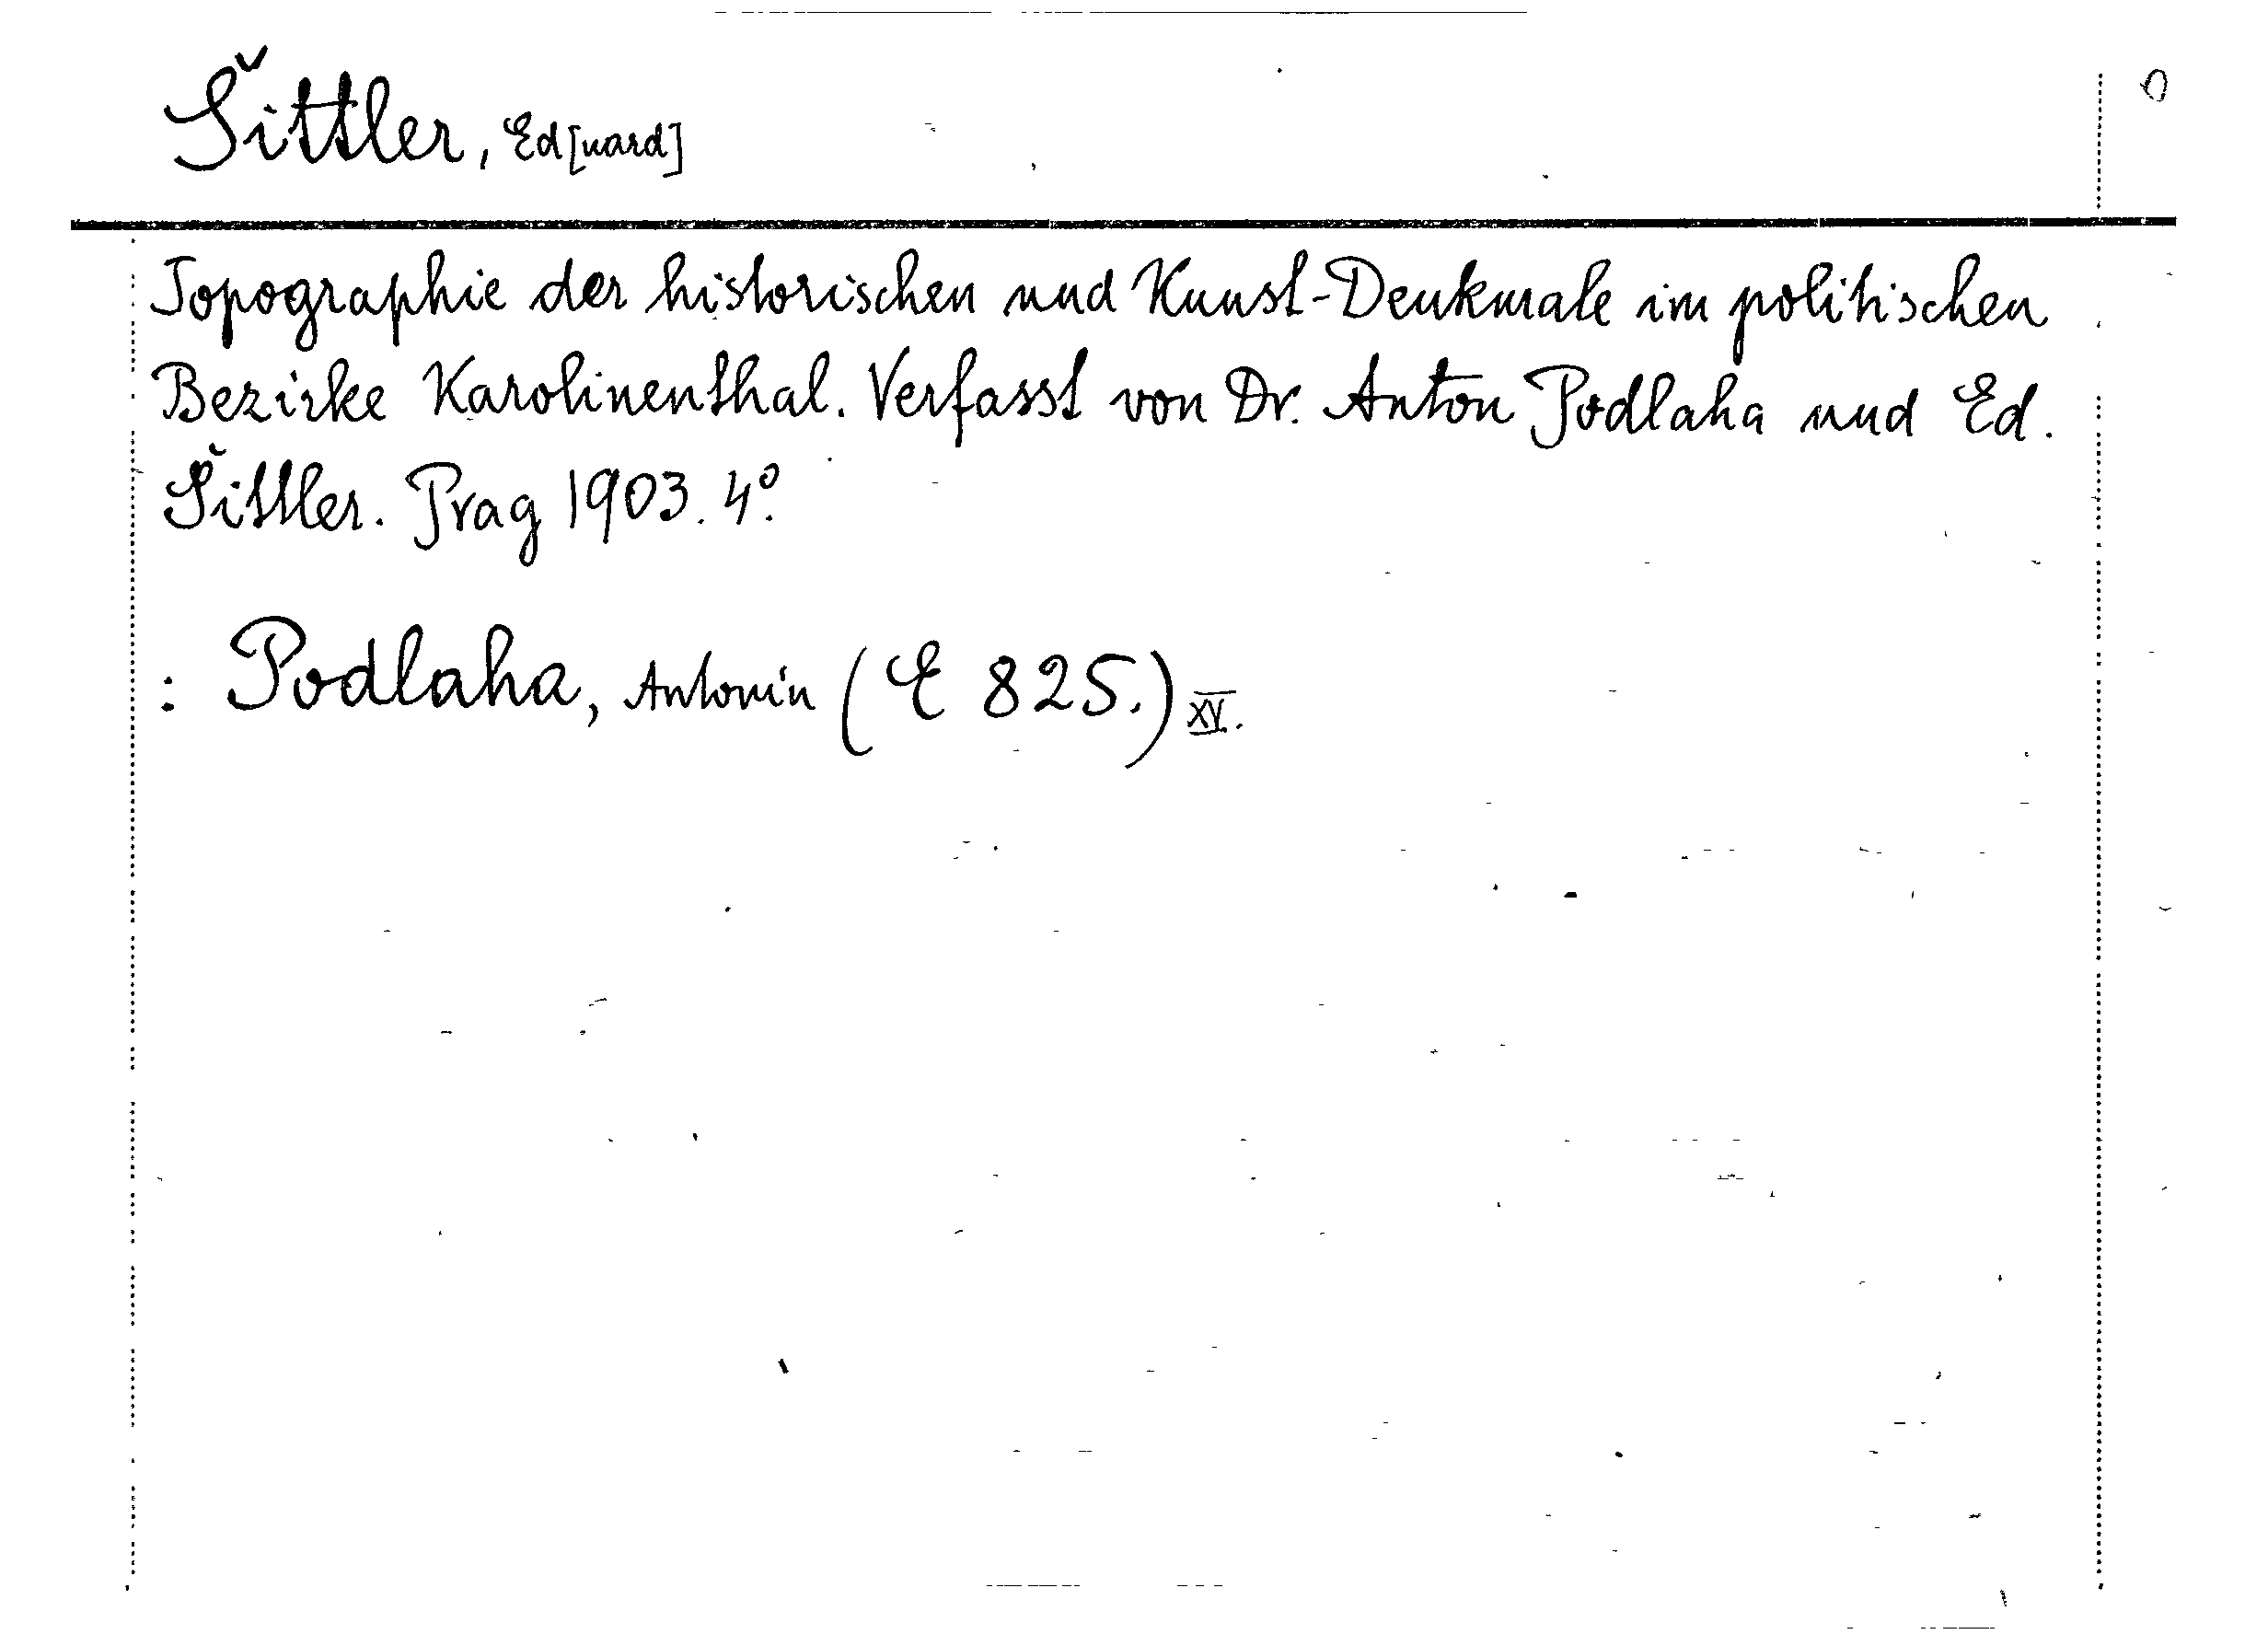 Šittler, Ed[uard]
Topographie der historischen und Kunst-Denkmale im politischen
Bezirke Karolinenthal. Verfasst von Dr. Anton Podlaha und Ed.
Šittler. Prag 1903. 4º.
: Podlaha, Antonín (E 825.) XV.